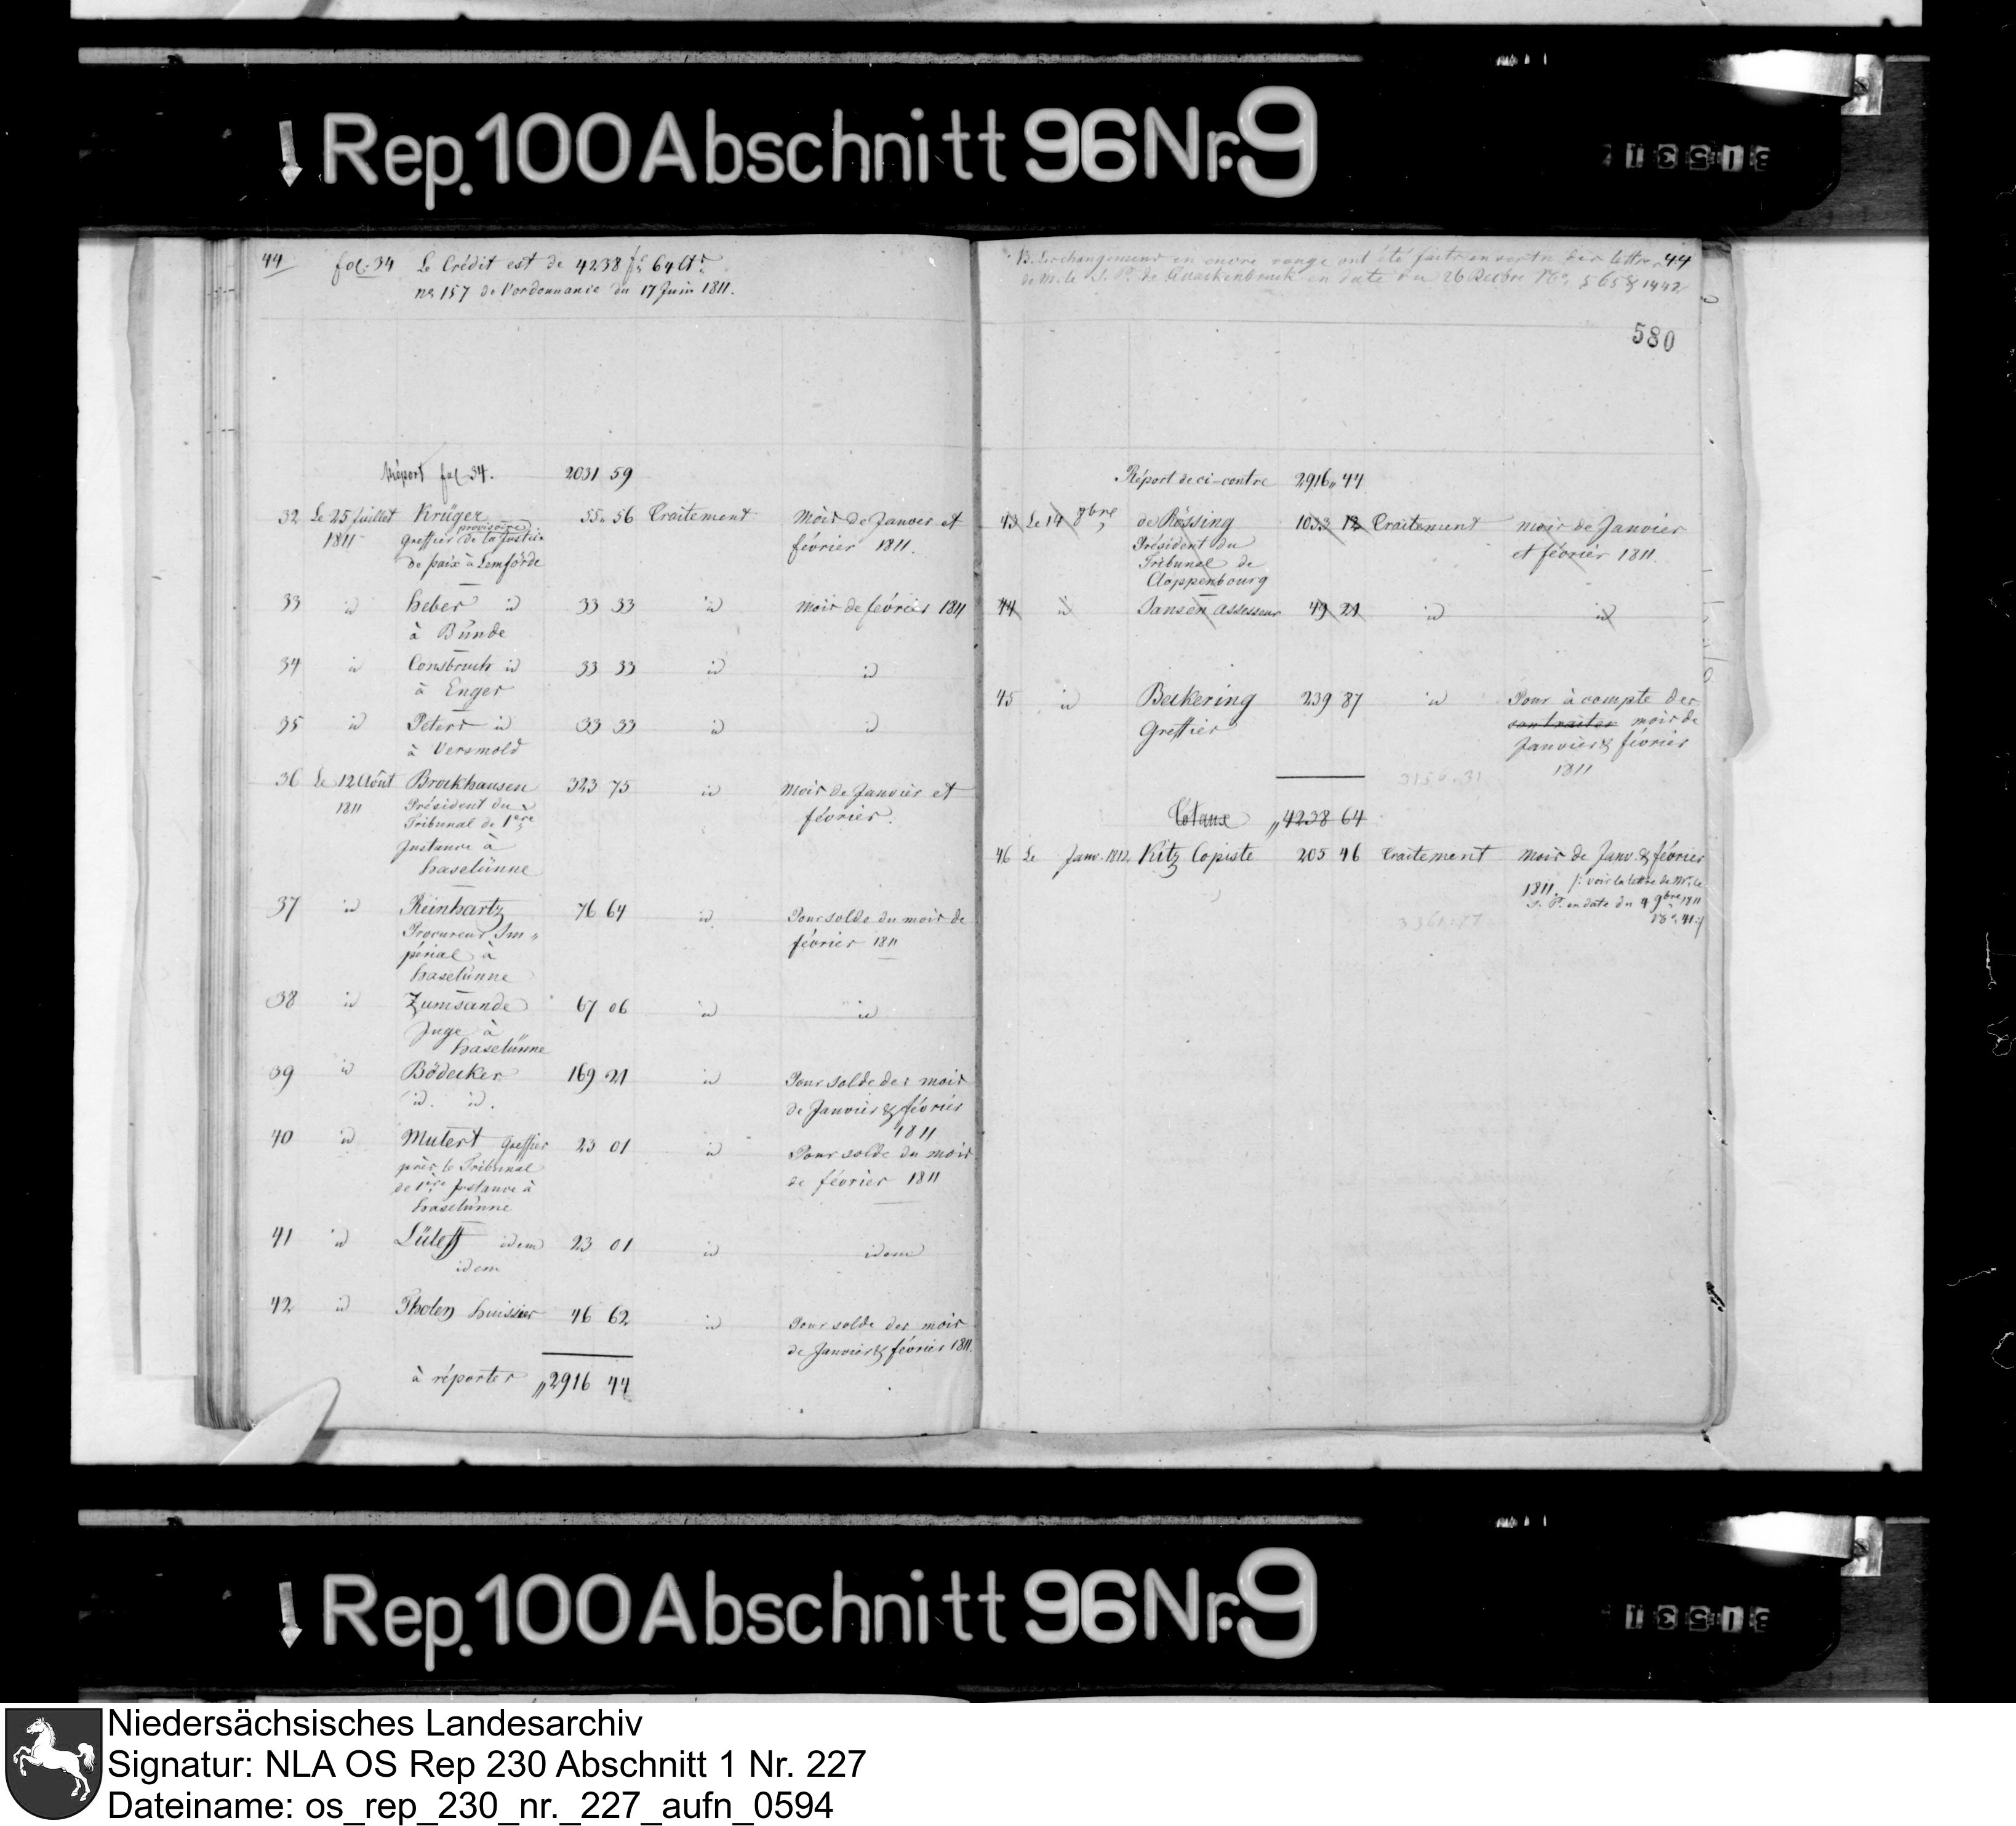 ↓ Rep. 100 Abschnitt 96 Nr. 9
44 fol: 34 Le Crédit est de 4238 fr. 64 Ct.
no 157 de l'ordonnance du 17 Juin 1811.
Réport fol 34. 2031 59
32 Le 25 Juillet Krüger 55 56 Traitement Mois de Janver et
1811 Greffier provisoire de la Justice février 1811.
de paix à Lemförde
33 id heber id 33 33 id mois de février 1811
à Bünde
34 id Consbruch id 33 33 id id
à Enger
35 id Peters id 33 33 id id
à Versmold
36 Le 12 Août Brockhausen 323 75 id Mois de Janvier et
1811 Président du février.
Tribunal de 1ere
Instance à
haselünne
37 id Reinhartz 76 64 id Pour solde du mois de
Procureur Im„ février 1811
périal à
haselünne
38 id Zumsande 67 06 id id
Juge à
haselünne
39 id Bödecker 169 21 id Pour solde des mois
id. id. de Janvier & février
1811
40 id Mutert greffier 23 01 id Pour solde du mois
près le Tribunal de février 1811
de 1ere Instance à
haselünne
41 id idem 23 01 id idem
idem
42 id Tholen huissier 46 62 id Pour solde des mois
de Janvier & février 1811.
à réporter „2916 44
B. Les changemens en encre rouge ont été faits en vertu des lettres 44
de M. le S. P. de Quackenbruck en date du 26 Decbre No. 565 & 1442
580
Réport de ci-contre 2916„ 44
43 Le 14 de Rössing 1033 12 Traitement mois de Janvier
Président du et février 1811.
Tribunal de
Cloppenbourg
44 id Jansen assesseur 49 21 id id
45 id Beckering 239 87 id Pour à compte des
Greffier mois de
Janvier & février
1811
3156.31
Totaux „4238 64
46 Le Janv. 1812 Kitz Copiste 205 46 traitement mois de Janv. & février
1811. /: voir la lettre de Mr. le
S. P. en date du 4 9bre 1811
No. 41 :/
3361.77
↓ Rep. 100 Abschnitt 96 Nr. 9
Niedersächsisches Landesarchiv
Signatur: NLA OS Rep 230 Abschnitt 1 Nr. 227
Dateiname: os_rep_230_nr._227_aufn_0594